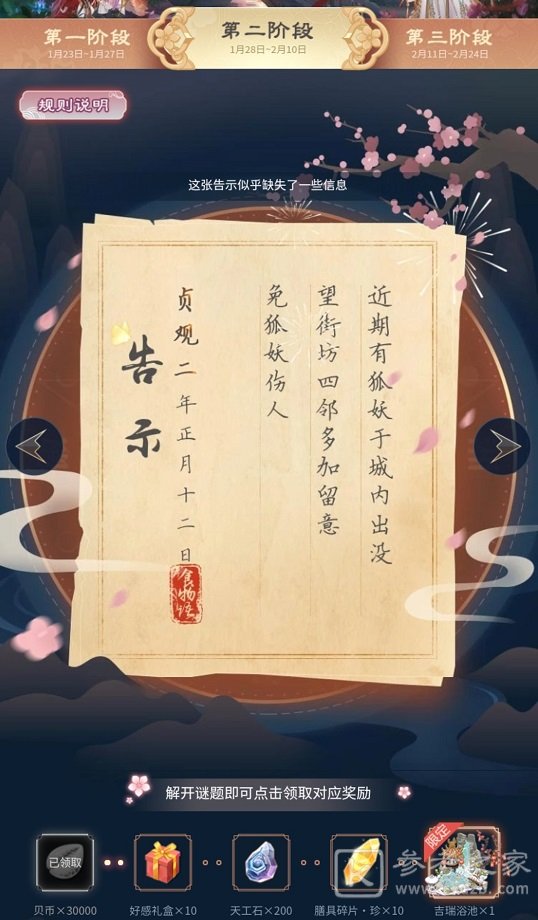 第一阶段
1月23日~1月27日
第二阶段
1月28日~2月10日
第三阶段
2月11日~2月24日
规则说明
这张告示似乎缺失了一些信息
近期有狐妖于城内出没
望街坊四邻多加留意
免狐妖伤人
贞观二年正月十二日
食物语
告示
解开谜题即可点击领取对应奖励
已领取
限定
贝币×30000
好感礼盒×10
天工石×200
膳具碎片·珍×10
吉瑞浴池×1